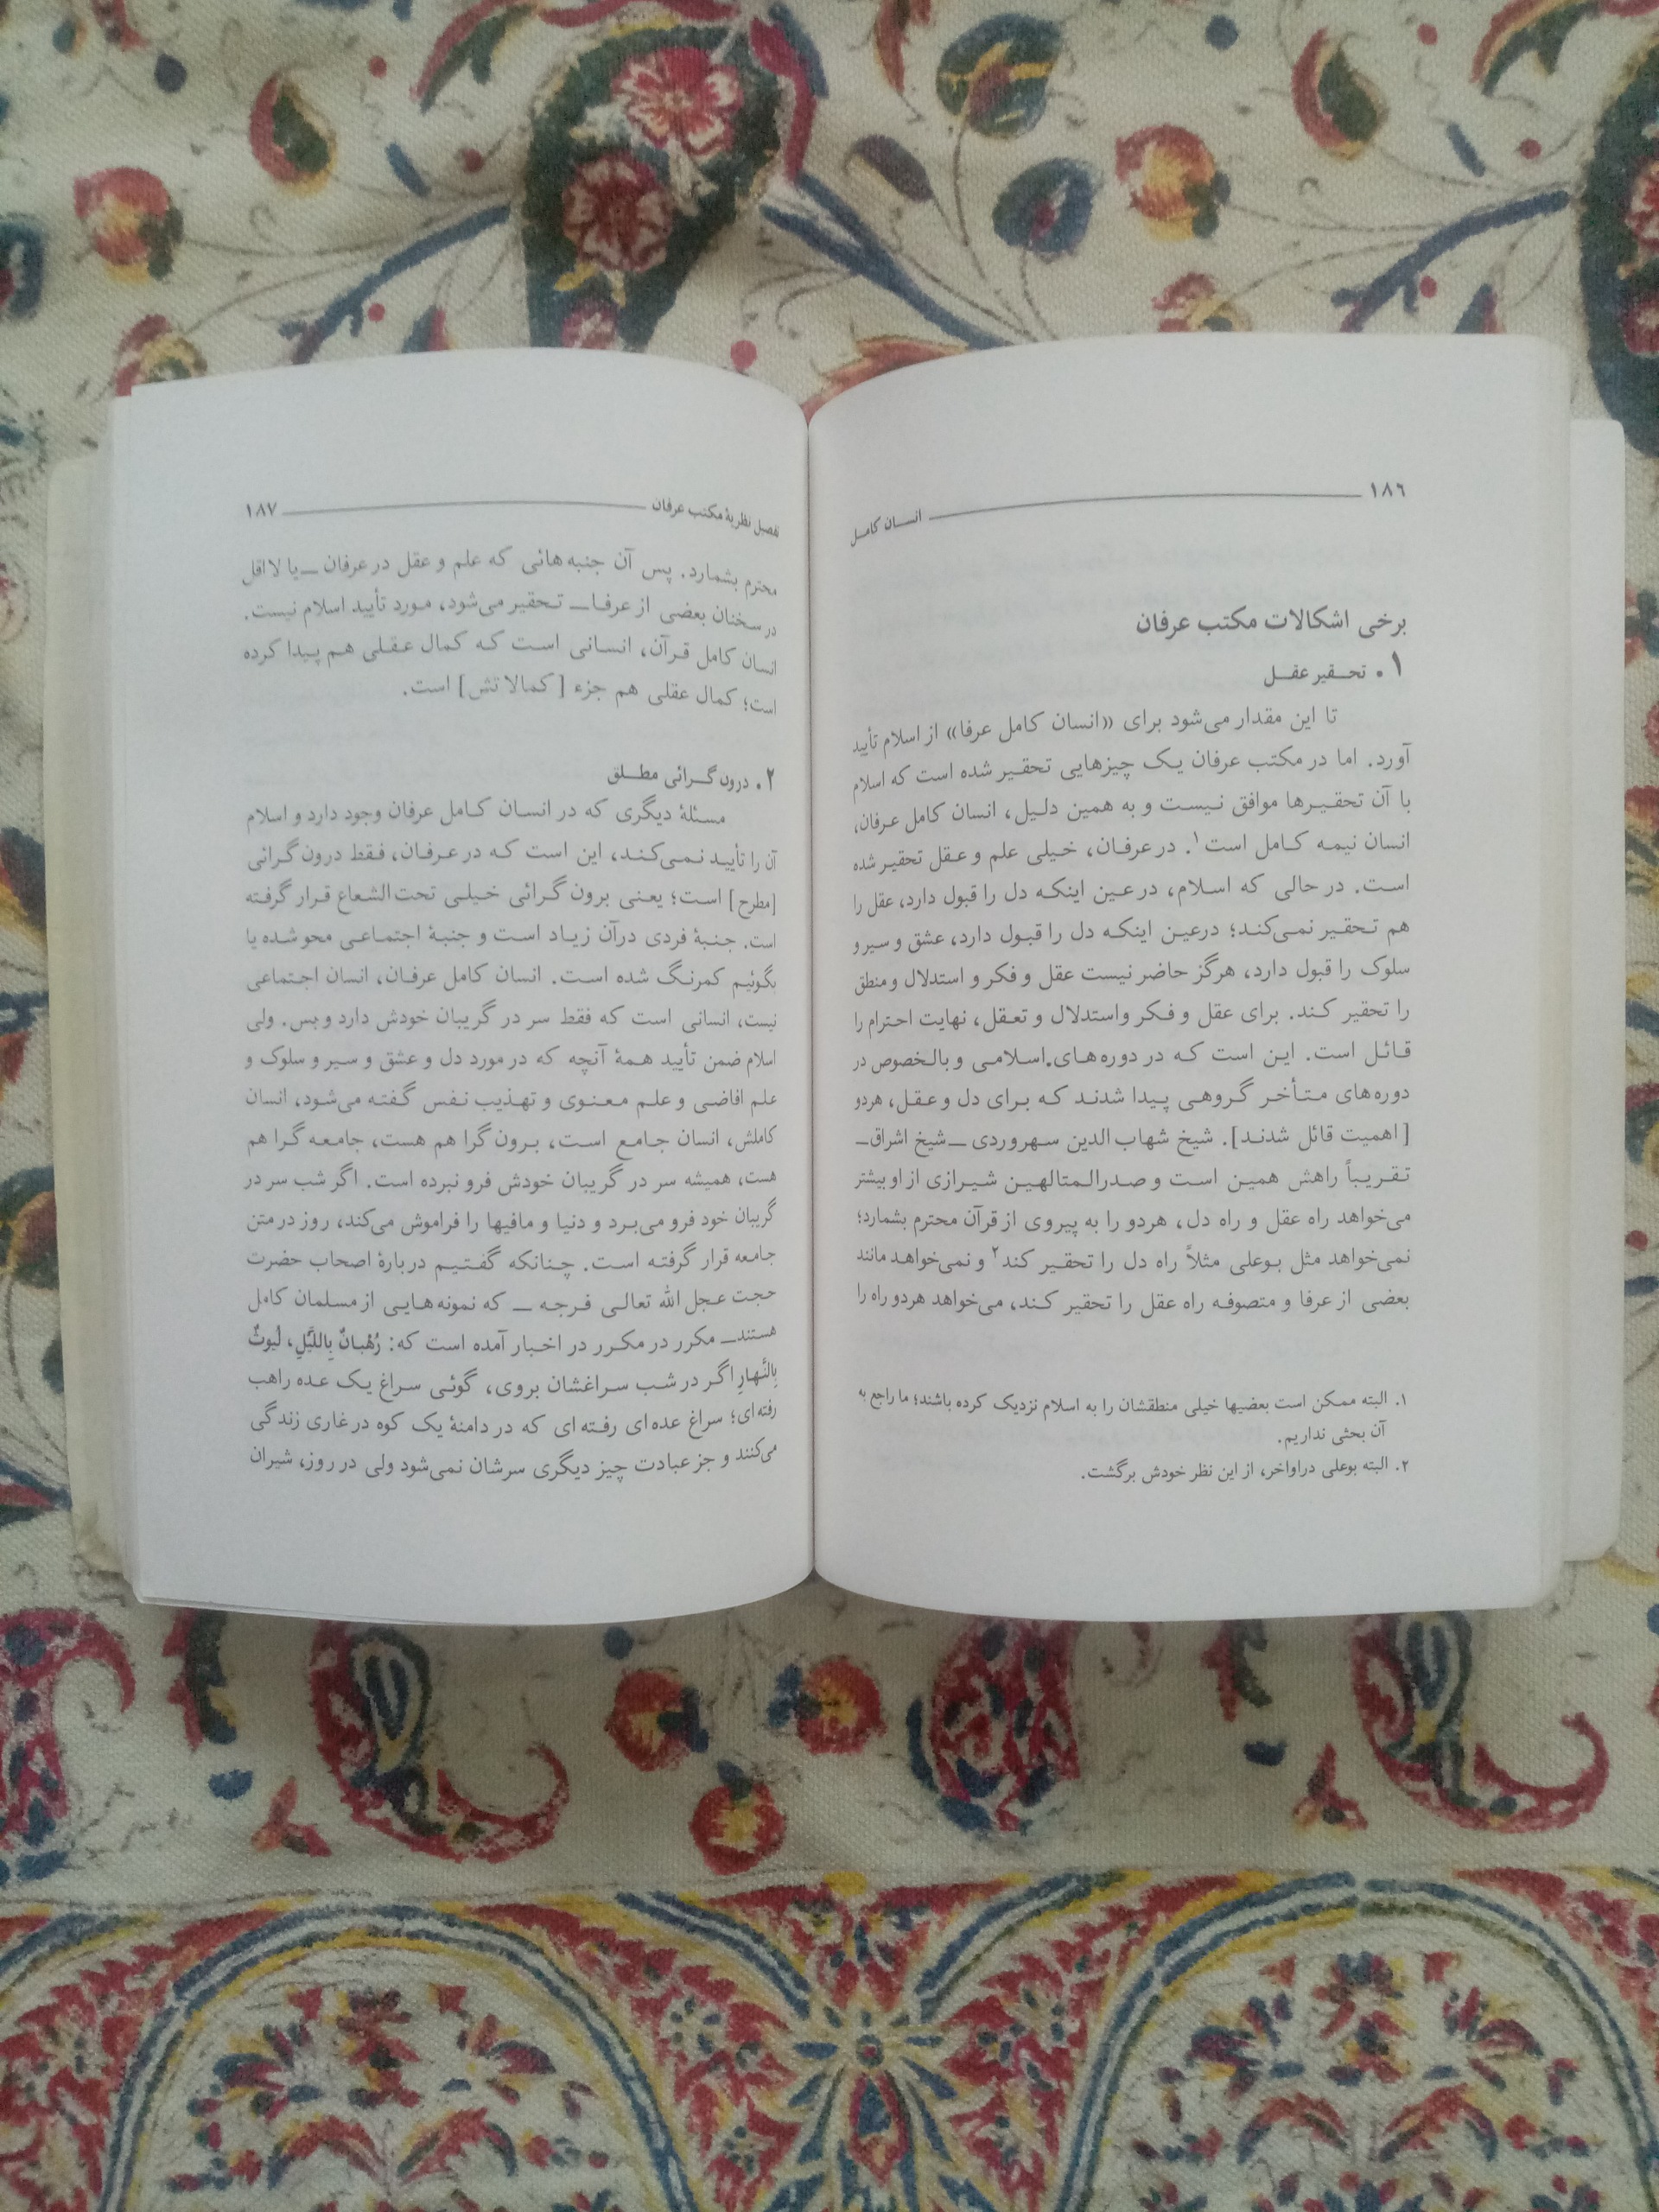 ۱۸۶
انسان کامل
برخی اشکالات مکتب عرفان
۱. تحقیر عقل
تا این مقدار می‌شود برای «انسان کامل عرفا» از اسلام تأیید
آورد. اما در مکتب عرفان یک چیزهایی تحقیر شده است که اسلام
با آن تحقیرها موافق نیست و به همین دلیل، انسان کامل عرفان،
انسان نیمه کامل است۱. در عرفان، خیلی علم و عقل تحقیر شده
است. در حالی که اسلام، در عین اینکه دل را قبول دارد، عقل را
هم تحقیر نمی‌کند؛ درعین اینکه دل را قبول دارد، عشق و سیر و
سلوک را قبول دارد، هرگز حاضر نیست عقل و فکر و استدلال و منطق
را تحقیر کند. برای عقل و فکر واستدلال و تعقل، نهایت احترام را
قائل است. این است که در دوره‌های اسلامی و بالخصوص در
دوره‌های متأخر گروهی پیدا شدند که برای دل و عقل، هردو
[اهمیت قائل شدند]. شیخ شهاب الدین سهروردی ــ شیخ اشراق ــ
تقریباً راهش همین است و صدرالمتالهین شیرازی از او بیشتر
می‌خواهد راه عقل و راه دل، هردو را به پیروی از قرآن محترم بشمارد؛
نمی‌خواهد مثل بوعلی مثلاً راه دل را تحقیر کند۲ و نمی‌خواهد مانند
بعضی از عرفا و متصوفه راه عقل را تحقیر کند، می‌خواهد هردو راه را
۱. البته ممکن است بعضیها خیلی منطقشان را به اسلام نزدیک کرده باشند؛ ما راجع به
آن بحثی نداریم.
۲. البته بوعلی دراواخر، از این نظر خودش برگشت.
نظریهٔ مکتب عرفان
۱۸۷
محترم بشمارد. پس آن جنبه هائی که علم و عقل در عرفان ــ یا لااقل
در سخنان بعضی از عرفا ــ تحقیر می‌شود، مورد تأیید اسلام نیست.
انسان کامل قرآن، انسانی است که کمال عقلی هم پیدا کرده
است؛ کمال عقلی هم جزء [کمالاتش] است.
۲. درون گرائی مطلق
مسئلهٔ دیگری که در انسان کامل عرفان وجود دارد و اسلام
آن را تأیید نمی‌کند، این است که در عرفان، فقط درون گرائی
[مطرح] است؛ یعنی برون گرائی خیلی تحت الشعاع قرار گرفته
است. جنبهٔ فردی درآن زیاد است و جنبهٔ اجتماعی محو شده یا
بگوئیم کمرنگ شده است. انسان کامل عرفان، انسان اجتماعی
نیست، انسانی است که فقط سر در گریبان خودش دارد و بس. ولی
اسلام ضمن تأیید همهٔ آنچه که در مورد دل و عشق و سیر و سلوک و
علم افاضی و علم معنوی و تهذیب نفس گفته می‌شود، انسان
کاملش، انسان جامع است، برون گرا هم هست، جامعه گرا هم
هست، همیشه سر در گریبان خودش فرو نبرده است. اگر شب سر در
گریبان خود فرو می‌برد و دنیا و مافیها را فراموش می‌کند، روز در متن
جامعه قرار گرفته است. چنانکه گفتیم دربارهٔ اصحاب حضرت
حجت عجل الله تعالی فرجه ــ که نمونه هایی از مسلمان کامل
هستند ــ مکرر در مکرر در اخبار آمده است که: رُهْبانٌ بِاللَّیْلِ، لُیوثٌ
بِالنَّهارِ اگر در شب سراغشان بروی، گوئی سراغ یک عده راهب
رفته ای؛ سراغ عده ای رفته ای که در دامنهٔ یک کوه در غاری زندگی
می‌کنند و جز عبادت چیز دیگری سرشان نمی‌شود ولی در روز، شیران